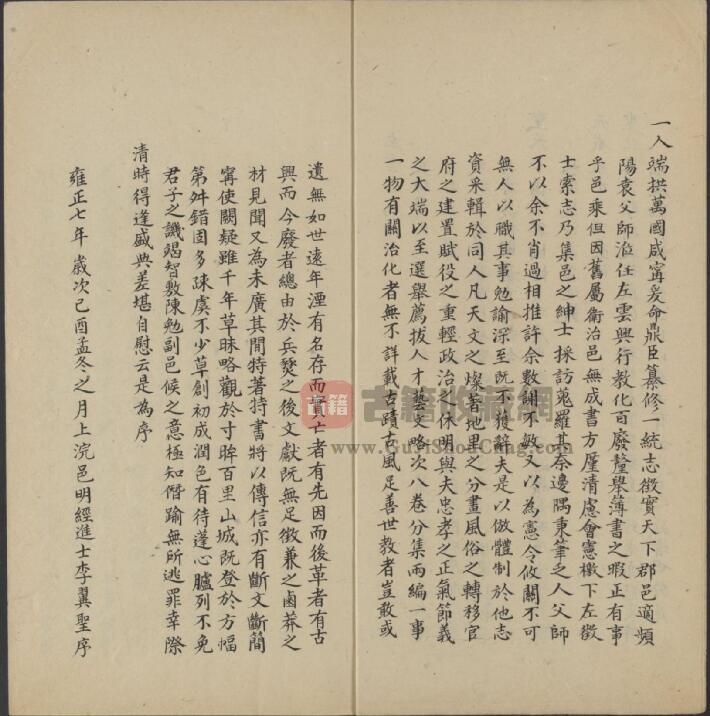 一人端拱萬國咸寧爰命鼎臣纂修一統志徵實天下郡邑適頻
陽袁父師涖任左雲興行教化百廢釐舉薄書之暇正有事
乎邑乘但因舊屬衛治邑無成書方厪清慮會憲檄下左徵
士索志乃集邑之紳士採訪蒐羅其奈邊隅東筆乏人父師
不以余不肖過相推許余數謝不敏又以為憲令攸關不可
無人以職其事勉諭深至既不獲辭夫是以倣體制於他志
資釆輯於同人凡天文之燦著地里之分畫風俗之轉移官
府之建置賦役之重輕政治之休明與夫忠孝之正氣節義
之大端以至選舉薦拔人才藝文略次八卷分集兩編一事
一物有關治化者無不詳載古蹟古風足善世教者豈敢或
遺無如世遠年湮有名存而實亡者有先因而後革者有古
興而今廢者總由於兵燹之後文獻既無足徵兼之鹵莽之
材見聞又為未廣其間特著持書將以傳信亦有斷文斷簡
寗使闕疑雖千年草昧略觀於寸眸百里山城既登於方幅
第舛錯固多疎虞不少草創初成潤色有待蓬心臚列不免
君子之譏竭智敷陳勉副邑侯之意極知僭踰無所逃罪幸際
清時得逢盛典差堪自慰云是為序
雍正七年歲次己酉孟冬之月上浣邑明經進士李翼聖序
古籍
古籍收藏網
www.GuJiShouCang.com